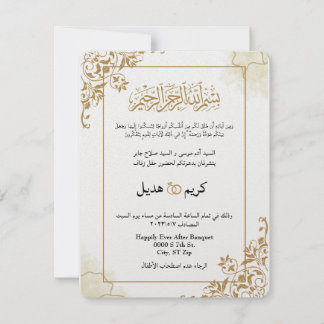 بسم الله الرحمن الرحيم
ومن آياته أن خلق لكم من أنفسكم أزواجا لتسكنوا إليها وجعل
بينكم مودة ورحمة إن في ذلك لآيات لقوم يتفكرون
السيد آدم موسى و السيد صلاح جابر
يتشرفان بدعوتكم لحضور حفل زفاف
كريم هديل
وذلك في تمام الساعة السادسة من مساء يوم السبت
المصادف ٢٠٢٣/٥/٧
Happily Ever After Banquet
0000 S 7th St.
City, ST Zip
الرجاء عدم اصطحاب الأطفال